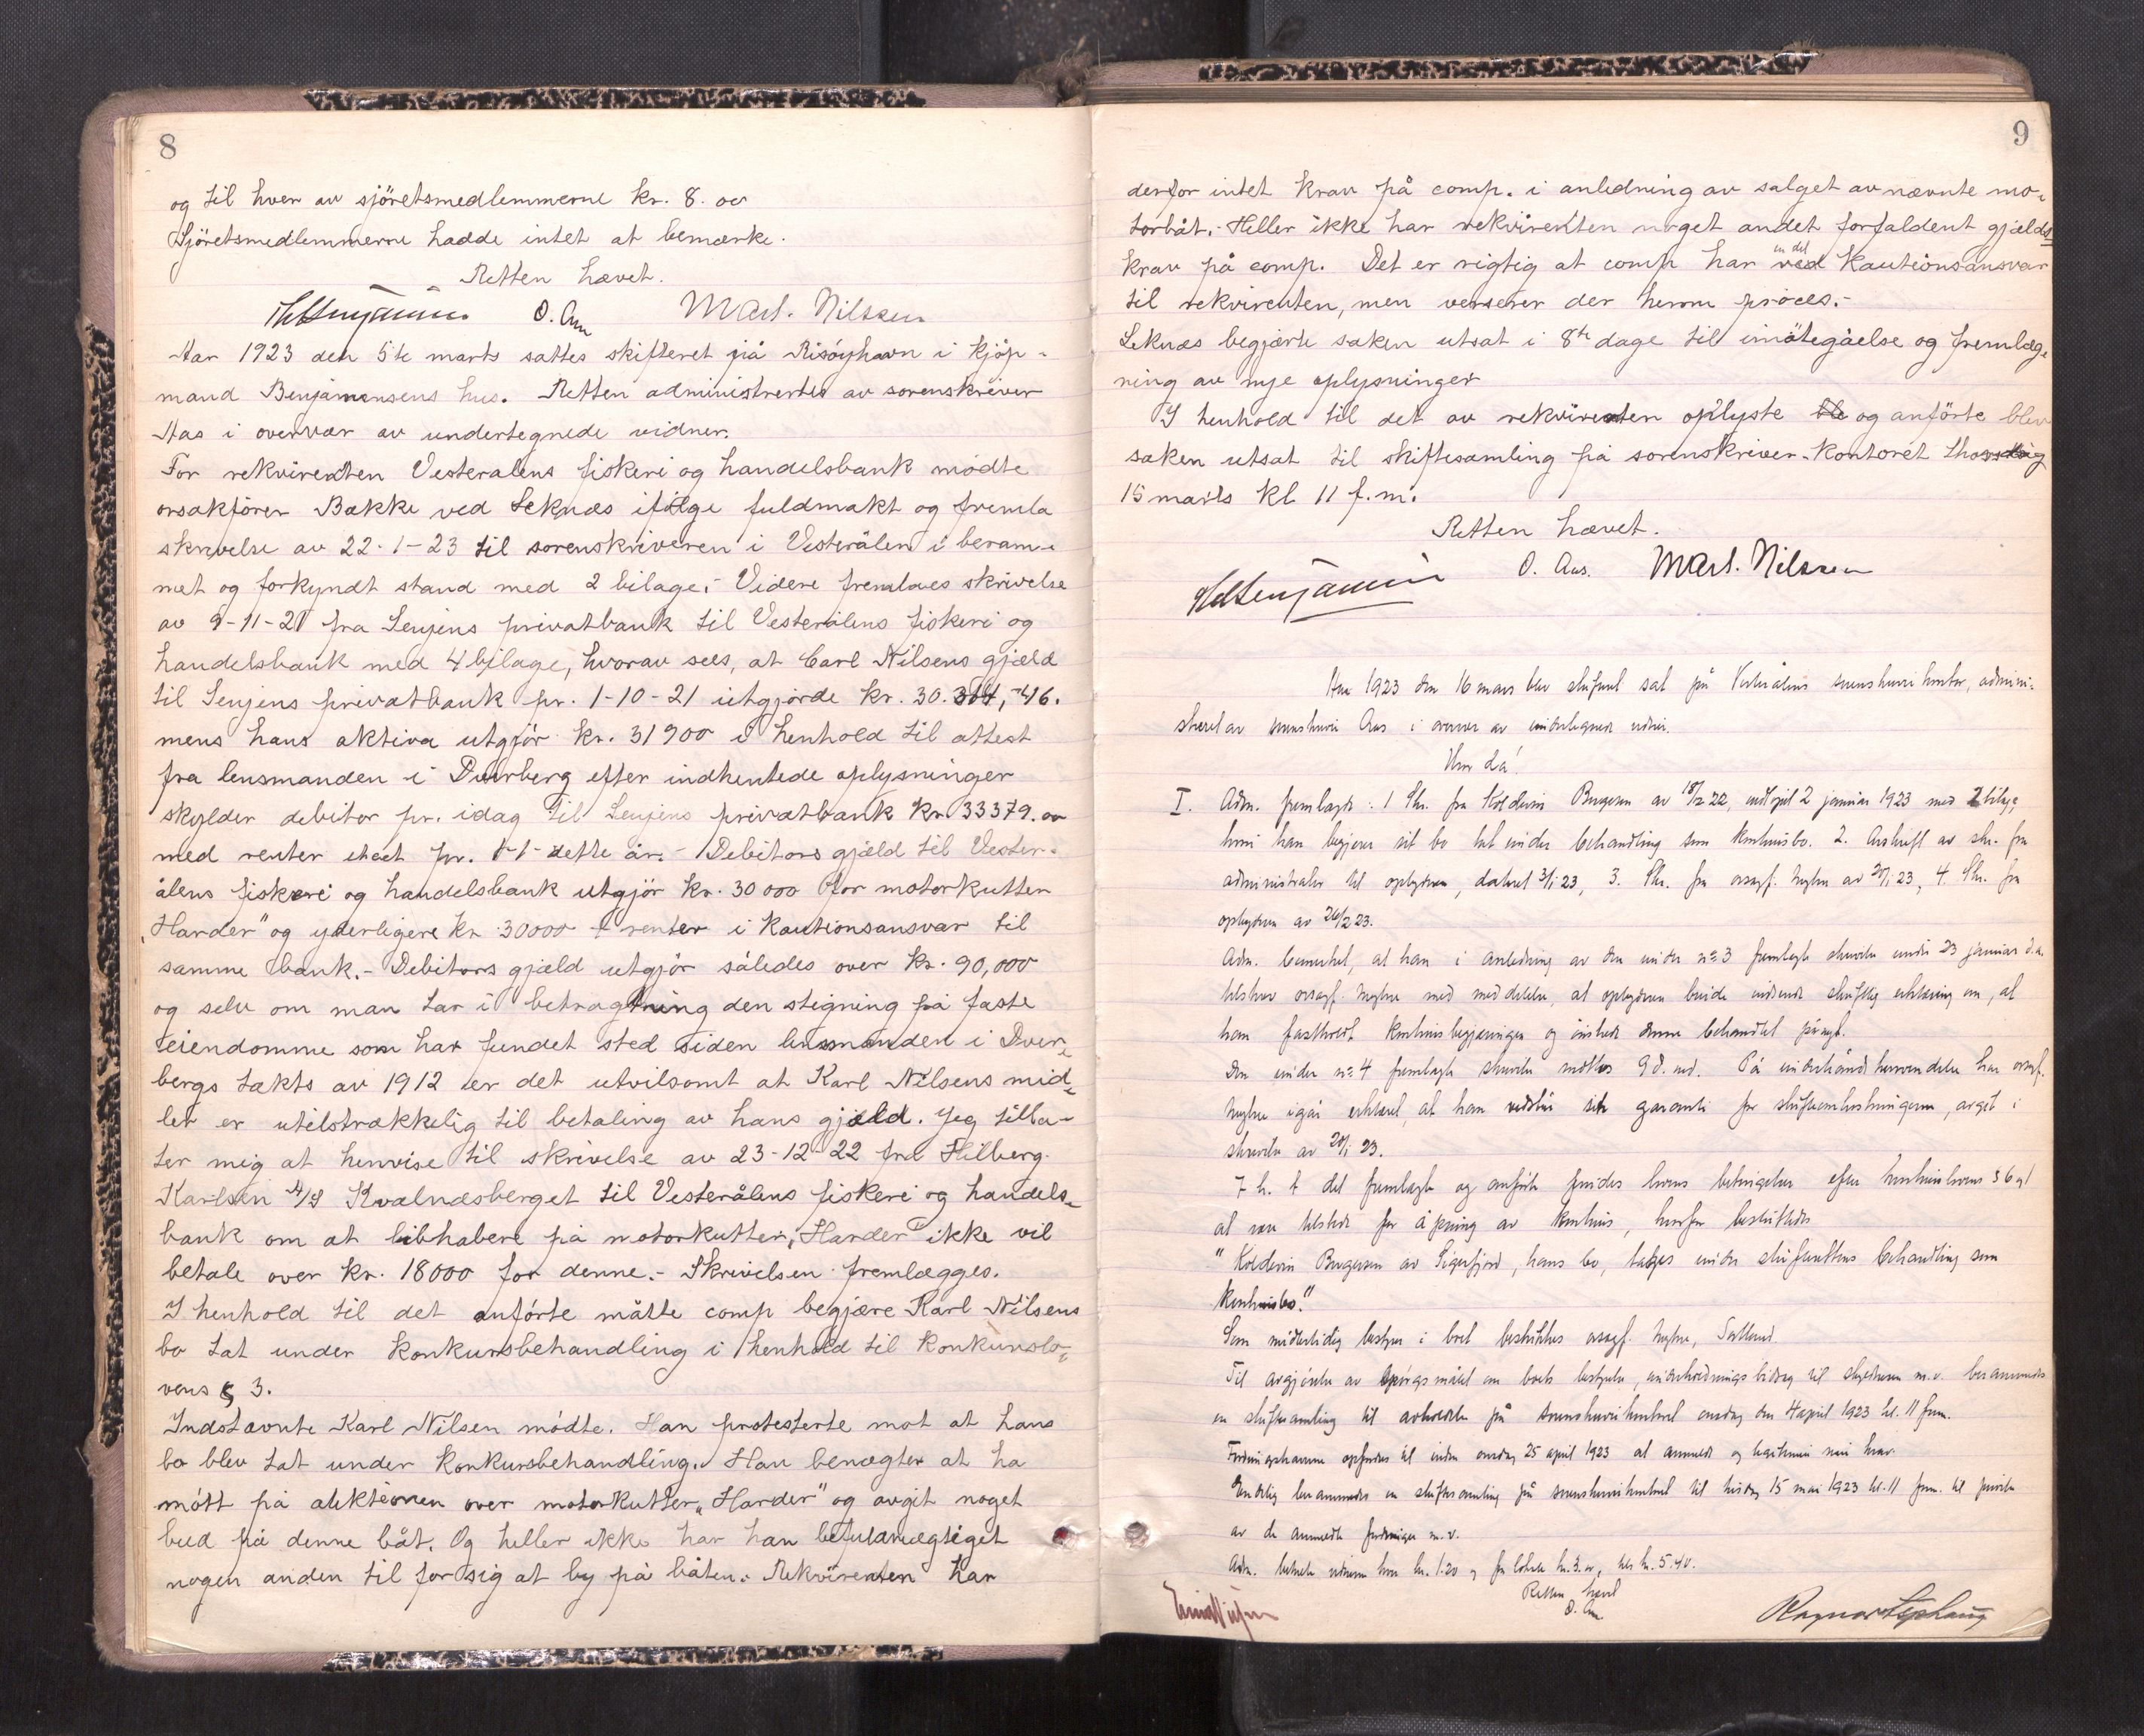 8
og til hver av sjöretsmedlemmerne kr. 8.00
Sjöretsmedlemmerne hadde intet at bemærke.
Retten hævet.
O. Aas Mart. Nilssen
Aar 1923 den 5te marts sattes skifteret på Risöyhavn i kjöp-
mand Benjaminsens hus. Retten administrertes av sorenskriver
Aas i overvær av undertegnede vidner.
For rekvirenten Vesteralens fiskeri og handelsbank mödte
orsakförer Bakke ved Leknæs ifölge fuldmakt og fremla
skrivelse av 22-1-23 til sorenskriveren i Vesterålen i beram-
met og forkyndt stand med 2 bilage.- Videre fremlaes skrivelse
av 9-11-21 fra Senjens privatbank til Vesterålens fiskeri og
handelsbank med 4 bilage, hvorav sees, at Carl Nilsens gjæld
til Senjens privatbank pr. 1-10-21 utgjorde kr. 30.304,-46.
mens hans aktiva utgjör kr. 31900 i henhold til attest
fra lensmanden i Dverberg efter indhentede oplysninger
skylder debitor pr. idag til Senjens privatbank kr 33379.00
med renter etect pr. 1-1- dette år.- Debitors gjæld til Vester-
ålens fiskeri og handelsbank utgjör kr. 30 000 for motorkutter
"Harder" og yderligere kr 30000 + renter i kautionsansvar til
samme bank.- Debitors gjæld utgjör således over kr. 90,000
og selv om man tar i betragtning den stigning på faste
eiendomme som har fundet sted siden lensmanden i Dver-
bergs taksts av 1912 er det utvilsomt at Karl Nilsens mid-
ler er utilstrækkelig til betaling av hans gjæld. Jeg tilla-
ter mig at henvise til skrivelse av 23-12-22 fra Hilberg
Karlsen A/S Kvalnæsberget til Vesterålens fiskeri og handels-
bank om at libhabere på motorkutter "Harder" ikke vil
betale over kr. 18000 for denne.- Skrivelsen fremlægges.
I henhold til det anförte måtte comp begjære Karl Nilsens
bo tat under konkursbehandling i henhold til konkurslo-
vens § 3.
Indstævnte Karl Nilsen mödte. Han protesterte mot at hans
bo blev tat under konkursbehandling. Han benægter at ha
mött på auktionen over motorkutter "Harder" og avgit noget
bud på denne båt. Og heller ikke har han befuldmægtiget
nogen anden til for sig at by på båten. Rekvirenten har
9
derfor intet krav på comp. i anledning av salget av nævnte mo-
torbåt.- Heller ikke har rekvirenten noget andet forfaldent gjælds-
krav på comp. Det er rigtig at comp har en del kautionsansvar
til rekvirenten, men verserer der herom proces.-
Leknæs begjærte saken utsat i 8te dage til imötegåelse og fremlæg-
ning av nye oplysninger
I henhold til det av rekvirenten oplyste og anförte blev
saken utsat til skiftesamling på sorenskriver-kontoret
15 marts kl 11 f.m.
Retten hævet.
O. Aas. Mart. Nilssen
Aar 1923 den 16 mars blev skifteret sat på Vesterålens sorenskriverkontor, admini-
streret av sorenskriver Aas i overvær av undertegnede vidner.
Hvor da!
I. Adm. fremlagde: 1 Skr. fra Kolderin av 18/12 22, 2 januar 1923 med 2 bilag,
hvori han begjærer sit bo tat under behandling som konkursbo. 2. Avskrift av skr. fra
administrator til opbyderen, dateret 3/1 23, 3. Skr. fra orsagf. av 20/1 23, 4. Skr. fra
opbyderen av 26/2 23.
Adm. bemerket, at han i anledning av den under no 3 fremlagte skrivelse under 23 januar d.a.
tilskrev orsagf. med meddelelse, at opbyderen burde indsende skriftlig erklæring om, at
han fastholdt konkursbegjæringen og önskede denne behandlet påny.
Den under no 4 fremlagte skrivelse mottos 9 d. md. På underhånd henvendelse har orsagf.
igår erklæret, at han garanti for skifteomkostningerne, avgit i
skrivelse av 20/1 23.
I h. t. det fremlagte og anförte findes lovens betingelser efter konkurslovens § 6
at være tilstede for åpning av konkurs, hvorfor besluttedes
"Kolderin av Sigerfjord, hans bo, tages under skifterettens behandling som
konkursbo."
Som midlertidig bestyrer i boet beskikkes orsagf. Sortland.
Til avgjörelse av spörgsmålet om boets bestyrelse, underholdningsbidrag til skyldneren m.v. berammedes
en skiftesamling til avholdelse på sorenskriverkontoret onsdag den 4 april 1923 kl. 11 fm.
Fordringshaverne opfordres til inden onsdag 25 april 1923 at anmelde og legitimere sine krav.
Endelig berammedes en skiftesamling på sorenskriverkontoret til tirsdag 15 mai 1923 kl. 11 fm. til prövelse
av de anmeldte fordringer m.v.
Adm. betalte vidnerne hver kr. 1.20 og for lokale kr. 3.00, tils kr. 5.40.
Retten hævet
O. Aas.